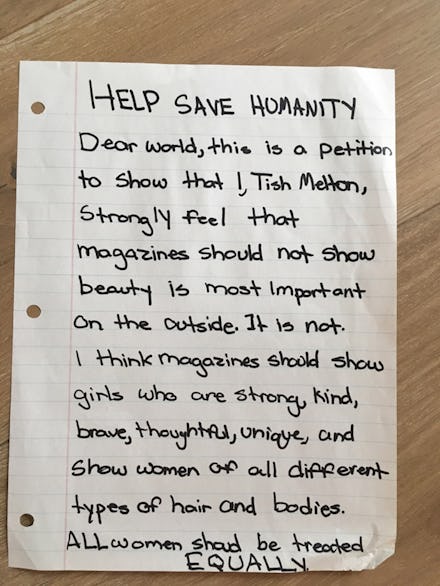 HELP SAVE HUMANITY
Dear world, this is a petition
to show that I, Tish Melton,
Strongly feel that
magazines should not show
beauty is most Important
on the outside. It is not.
I think magazines should show
girls who are strong, kind,
brave, thoughtful, unique, and
show women of all different
types of hair and bodies.
ALL women shoud be treated
EQUALLY.